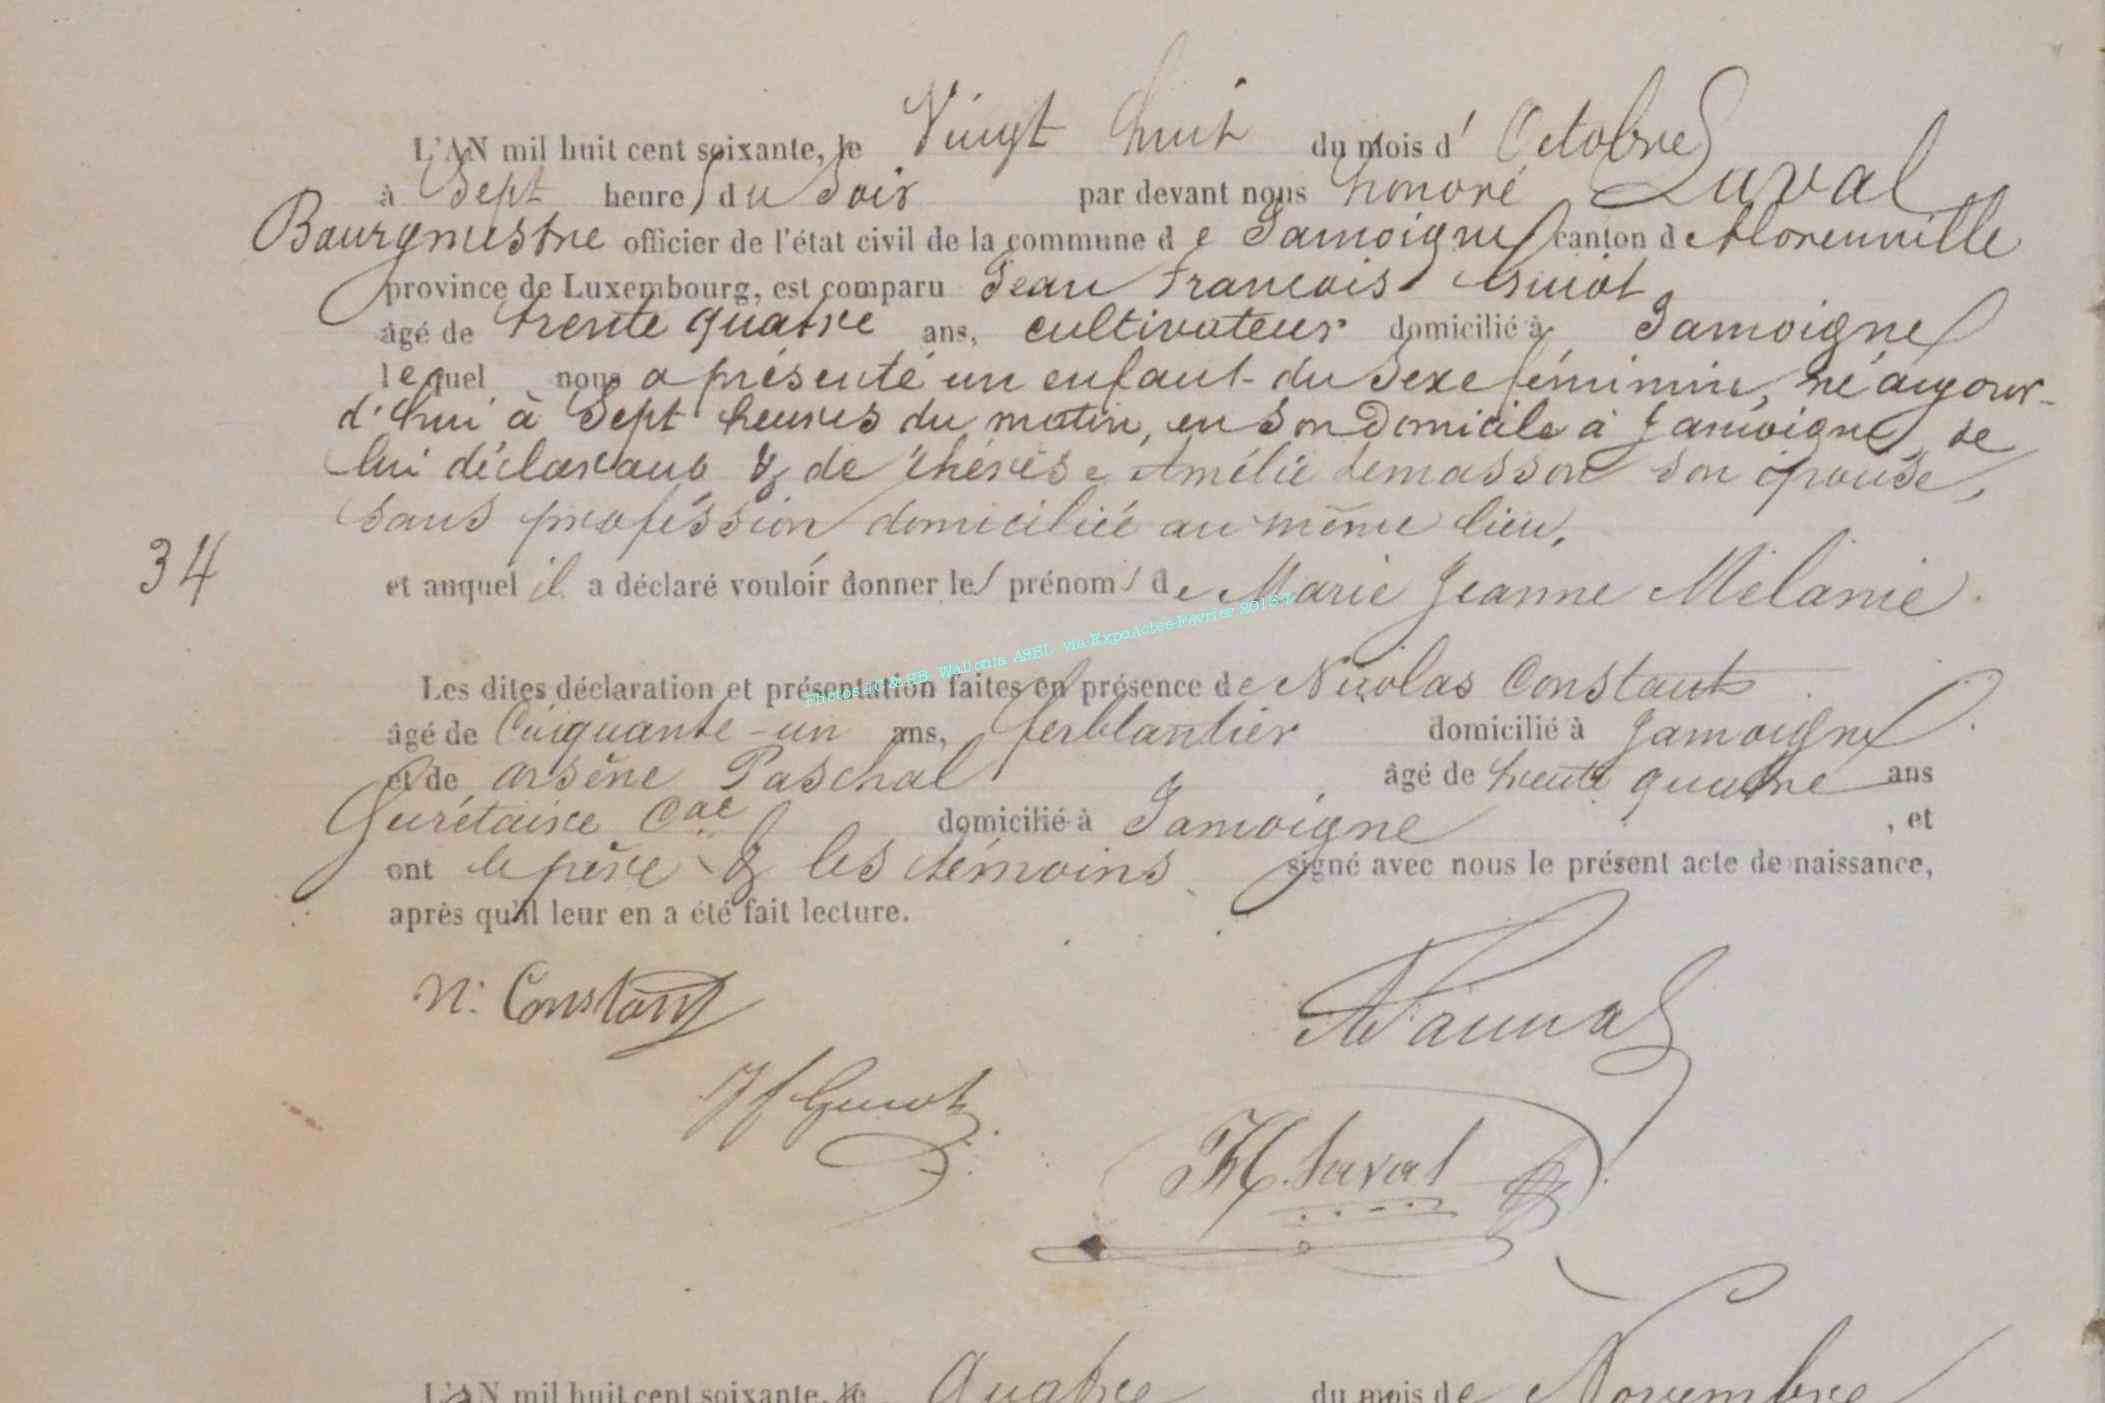 L'AN mil huit cent soixante, le Vingt huit du mois d' Octobre
à Sept heures du Soir par devant nous honoré Laval
Bourgmestre officier de l'état civil de la commune de Jamoigne canton de florenville
province de Luxembourg, est comparu Jean Francois Guiot
âgé de trente quatre ans, cultivateur domicilié à Jamoigne
lequel nous a présenté un enfant du Sexe féminin, né aujour-
d'hui à Sept heures du matin, en son Domicile à Jamoigne de
lui déclarant & de thérèse Amélie demasson son épouse,
sans profession domiciliée au même lieu,
34
et auquel il a déclaré vouloir donner les prénoms de Marie Jeanne Mélanie.
Photos JC & RB Wallonia ASBL via ExpoActes Février 2015
Les dites déclaration et présentation faites en présence de Nicolas Constant
âgé de Cinquante-un ans, ferblantier domicilié à Jamoigne
et de arsène Paschal âgé de trente quatre ans
Secrétaire Cal domicilié à Jamoigne, et
ont le père & les témoins signé avec nous le présent acte de naissance,
après qu'il leur en a été fait lecture.
N. Constant
Jf Guiot
H Laval
L'AN mil huit cent soixante, le Quatre du mois de Novembre